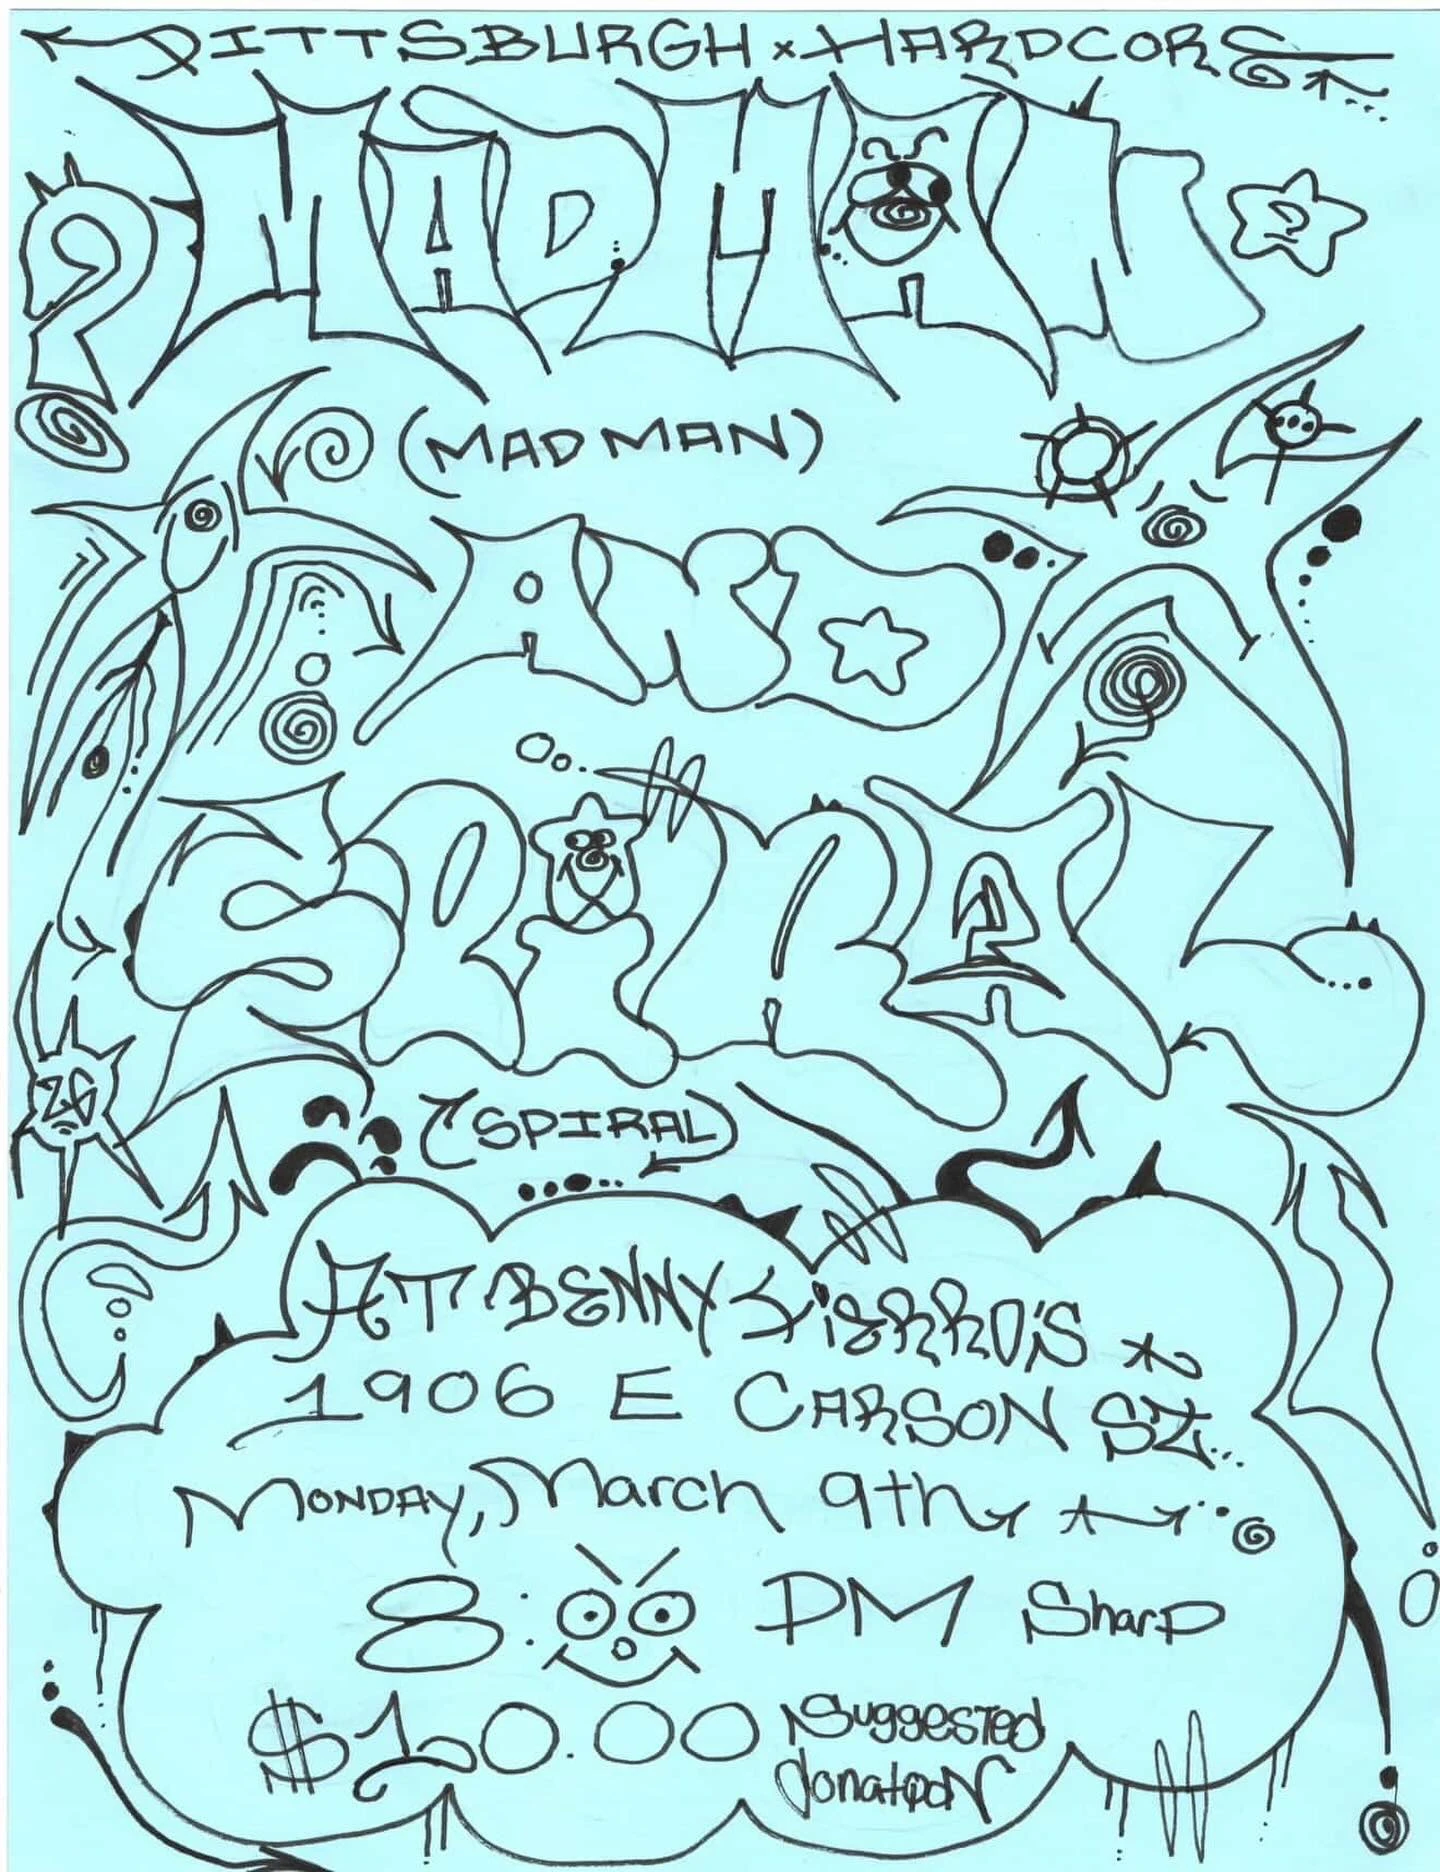 PITTSBURGH x HARDCORE
MADMAN
?
2
(MAD MAN)
AND
SPIRAL
26
(SPIRAL)
AT BENNY FIERRO'S
1906 E CARSON ST.
MONDAY, March 9th
8:00 PM Sharp
$10.00 Suggested
donation